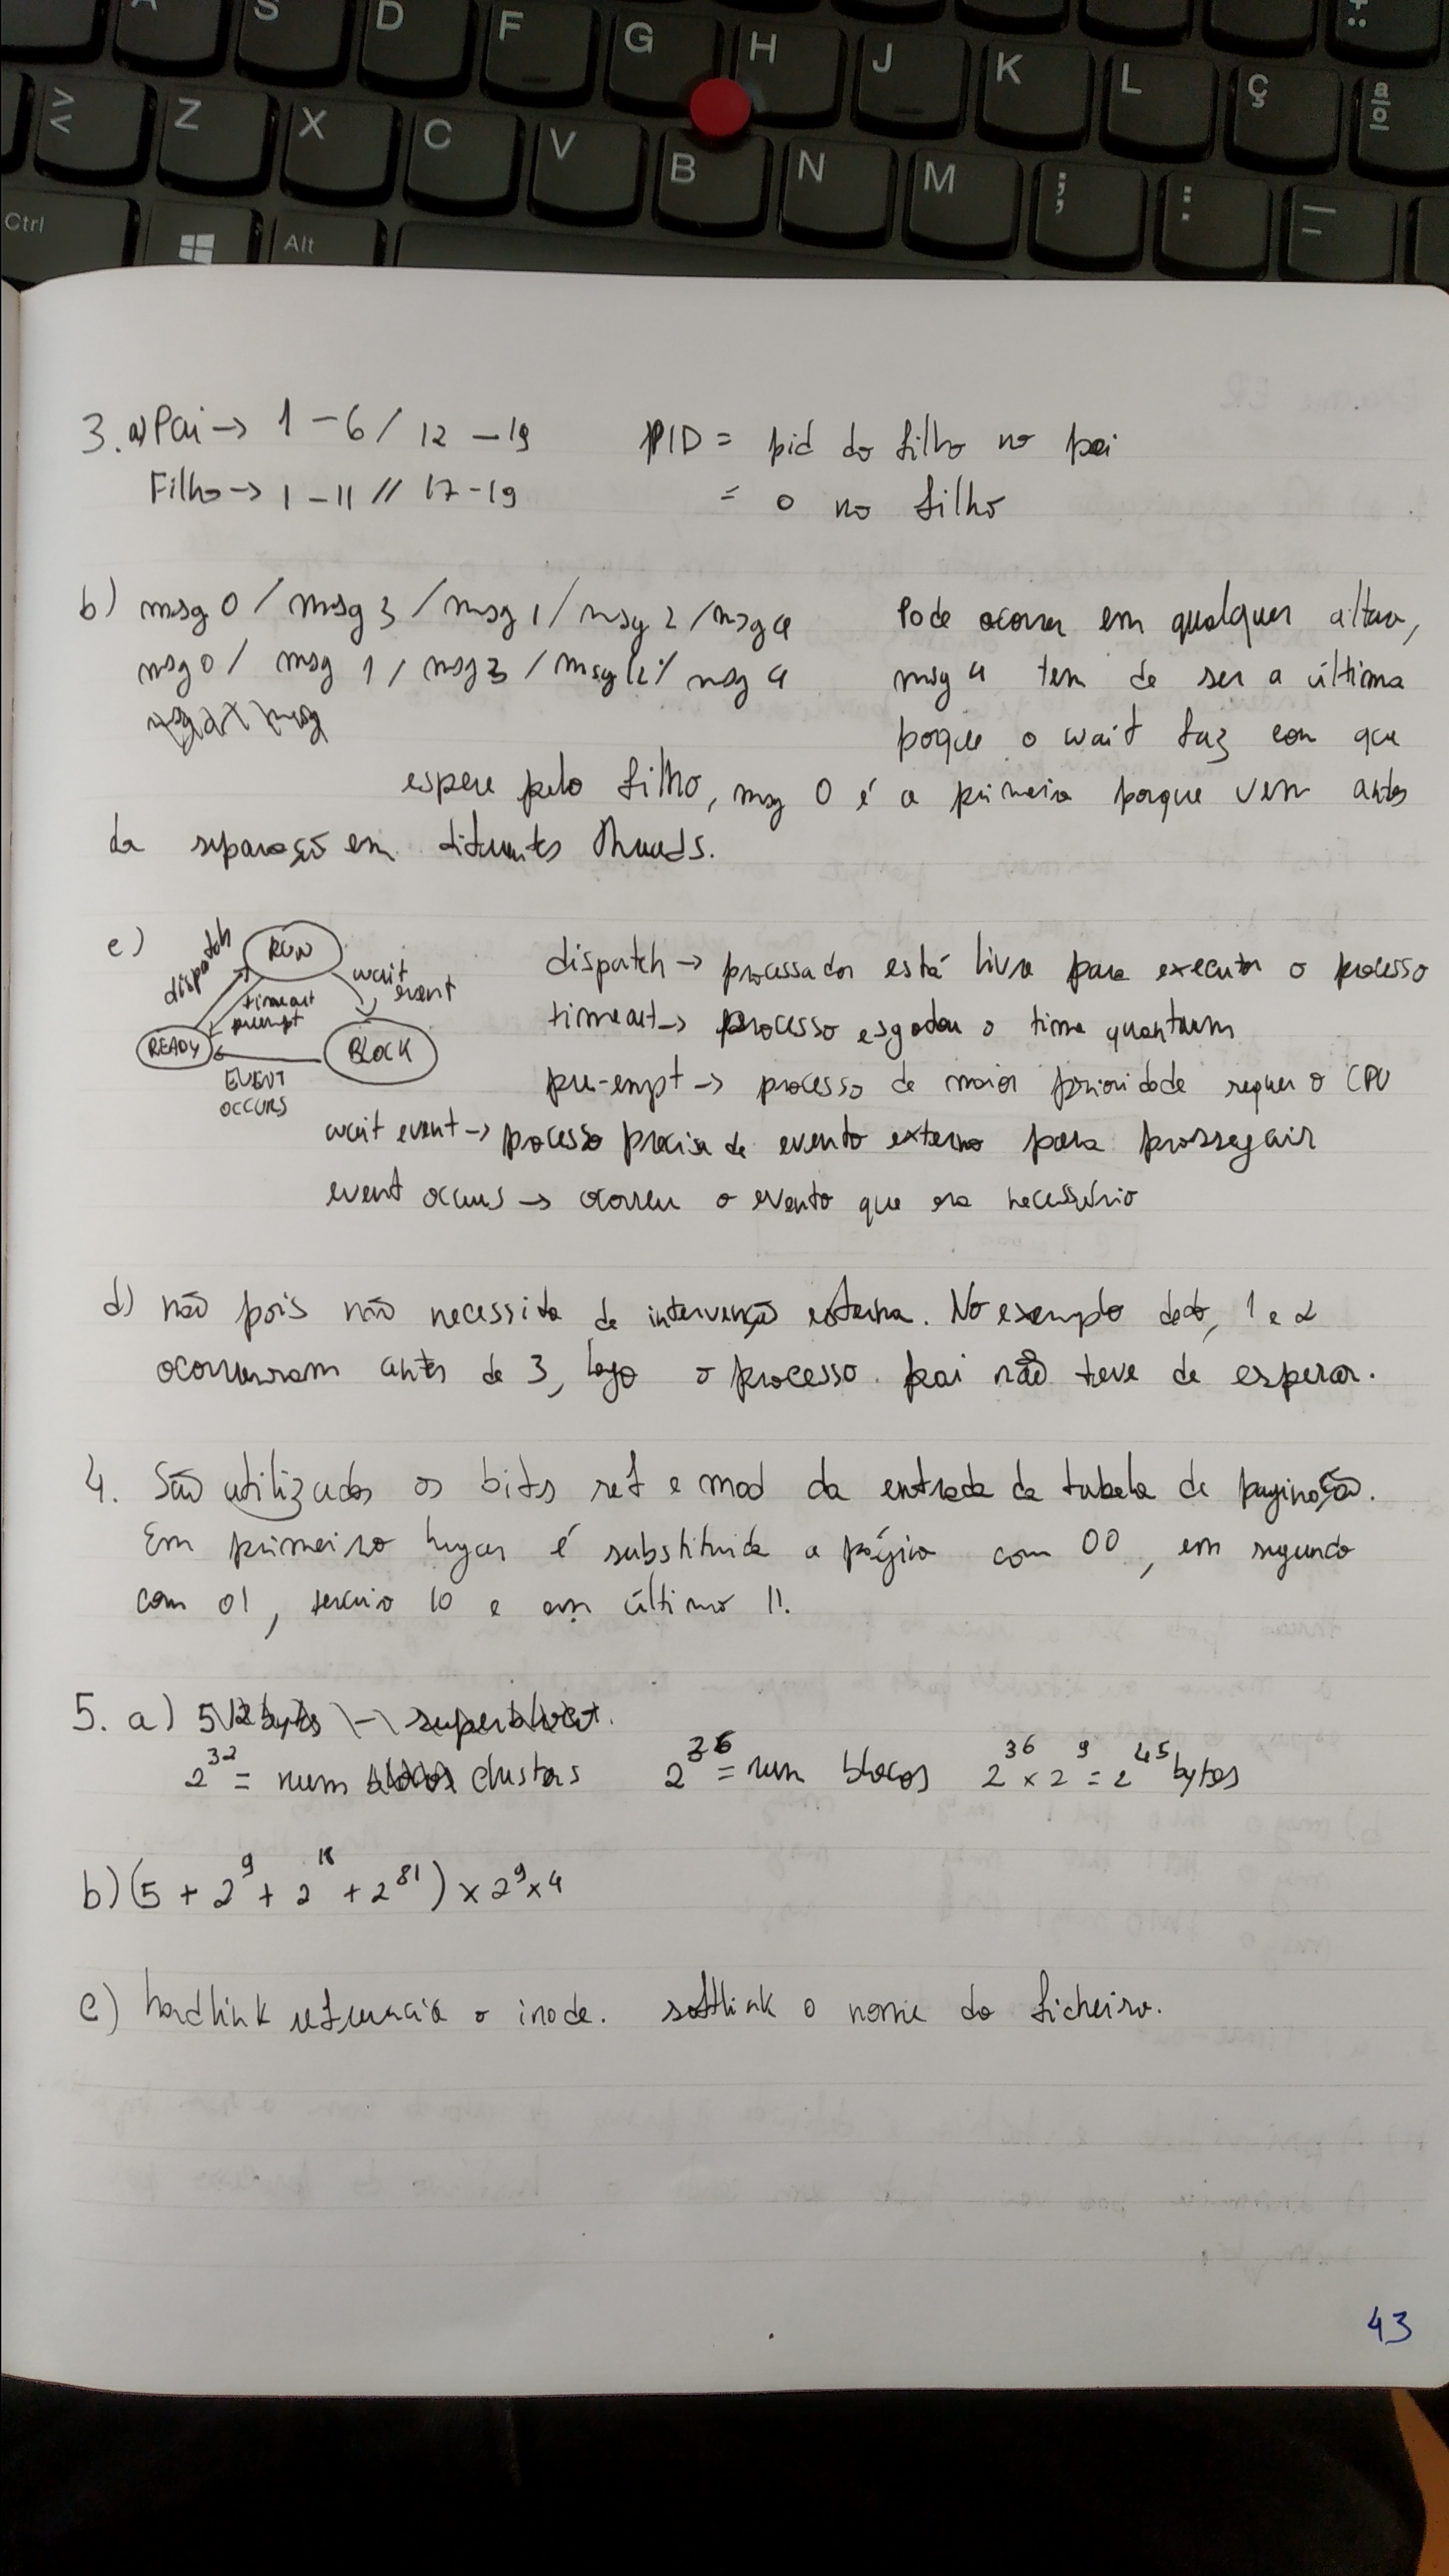 A S D F G H J K L Ç ª º
> < Z X C V B N M ; , : . _ -
Ctrl Alt
3. a) Pai → 1 – 6 / 12 – 19 PID = pid do filho no pai
Filho → 1 – 11 // 17 - 19 = 0 no filho
b) msg 0 / msg 3 / msg 1 / msg 2 / msg 4 Pode ocorrer em qualquer altura,
msg 0 / msg 1 / msg 3 / msg 2 / msg 4 msg 4 tem de ser a última
porque o wait faz com que
espere pelo filho, msg 0 é a primeira porque vem antes
da separação em diferentes threads.
c) RUN dispatch timeout preempt wait event READY BLOCK EVENT OCCURS
dispatch → processador está livre para executar o processo
timeout → processo esgotou o time quantum
pre-empt → processo de maior prioridade requer o CPU
wait event → processo precisa de evento externo para prosseguir
event occurs → ocorreu o evento que era necessário
d) não pois não necessita de intervenção externa. No exemplo dado, 1 e 2
ocorreram antes de 3, logo o processo pai não teve de esperar.
4. São utilizados os bits ref e mod da entrada da tabela de paginação.
Em primeiro lugar é substituida a página com 00, em segundo
com 01, terceiro 10 e em último 11.
5. a) 512 bytes → superblock.
2^32 = num clusters 2^36 = num blocos 2^36 × 2^9 = 2^45 bytes
b) (5 + 2^9 + 2^18 + 2^81) × 2^9 × 4
c) hardlink referencia o inode. softlink o nome do ficheiro.
43